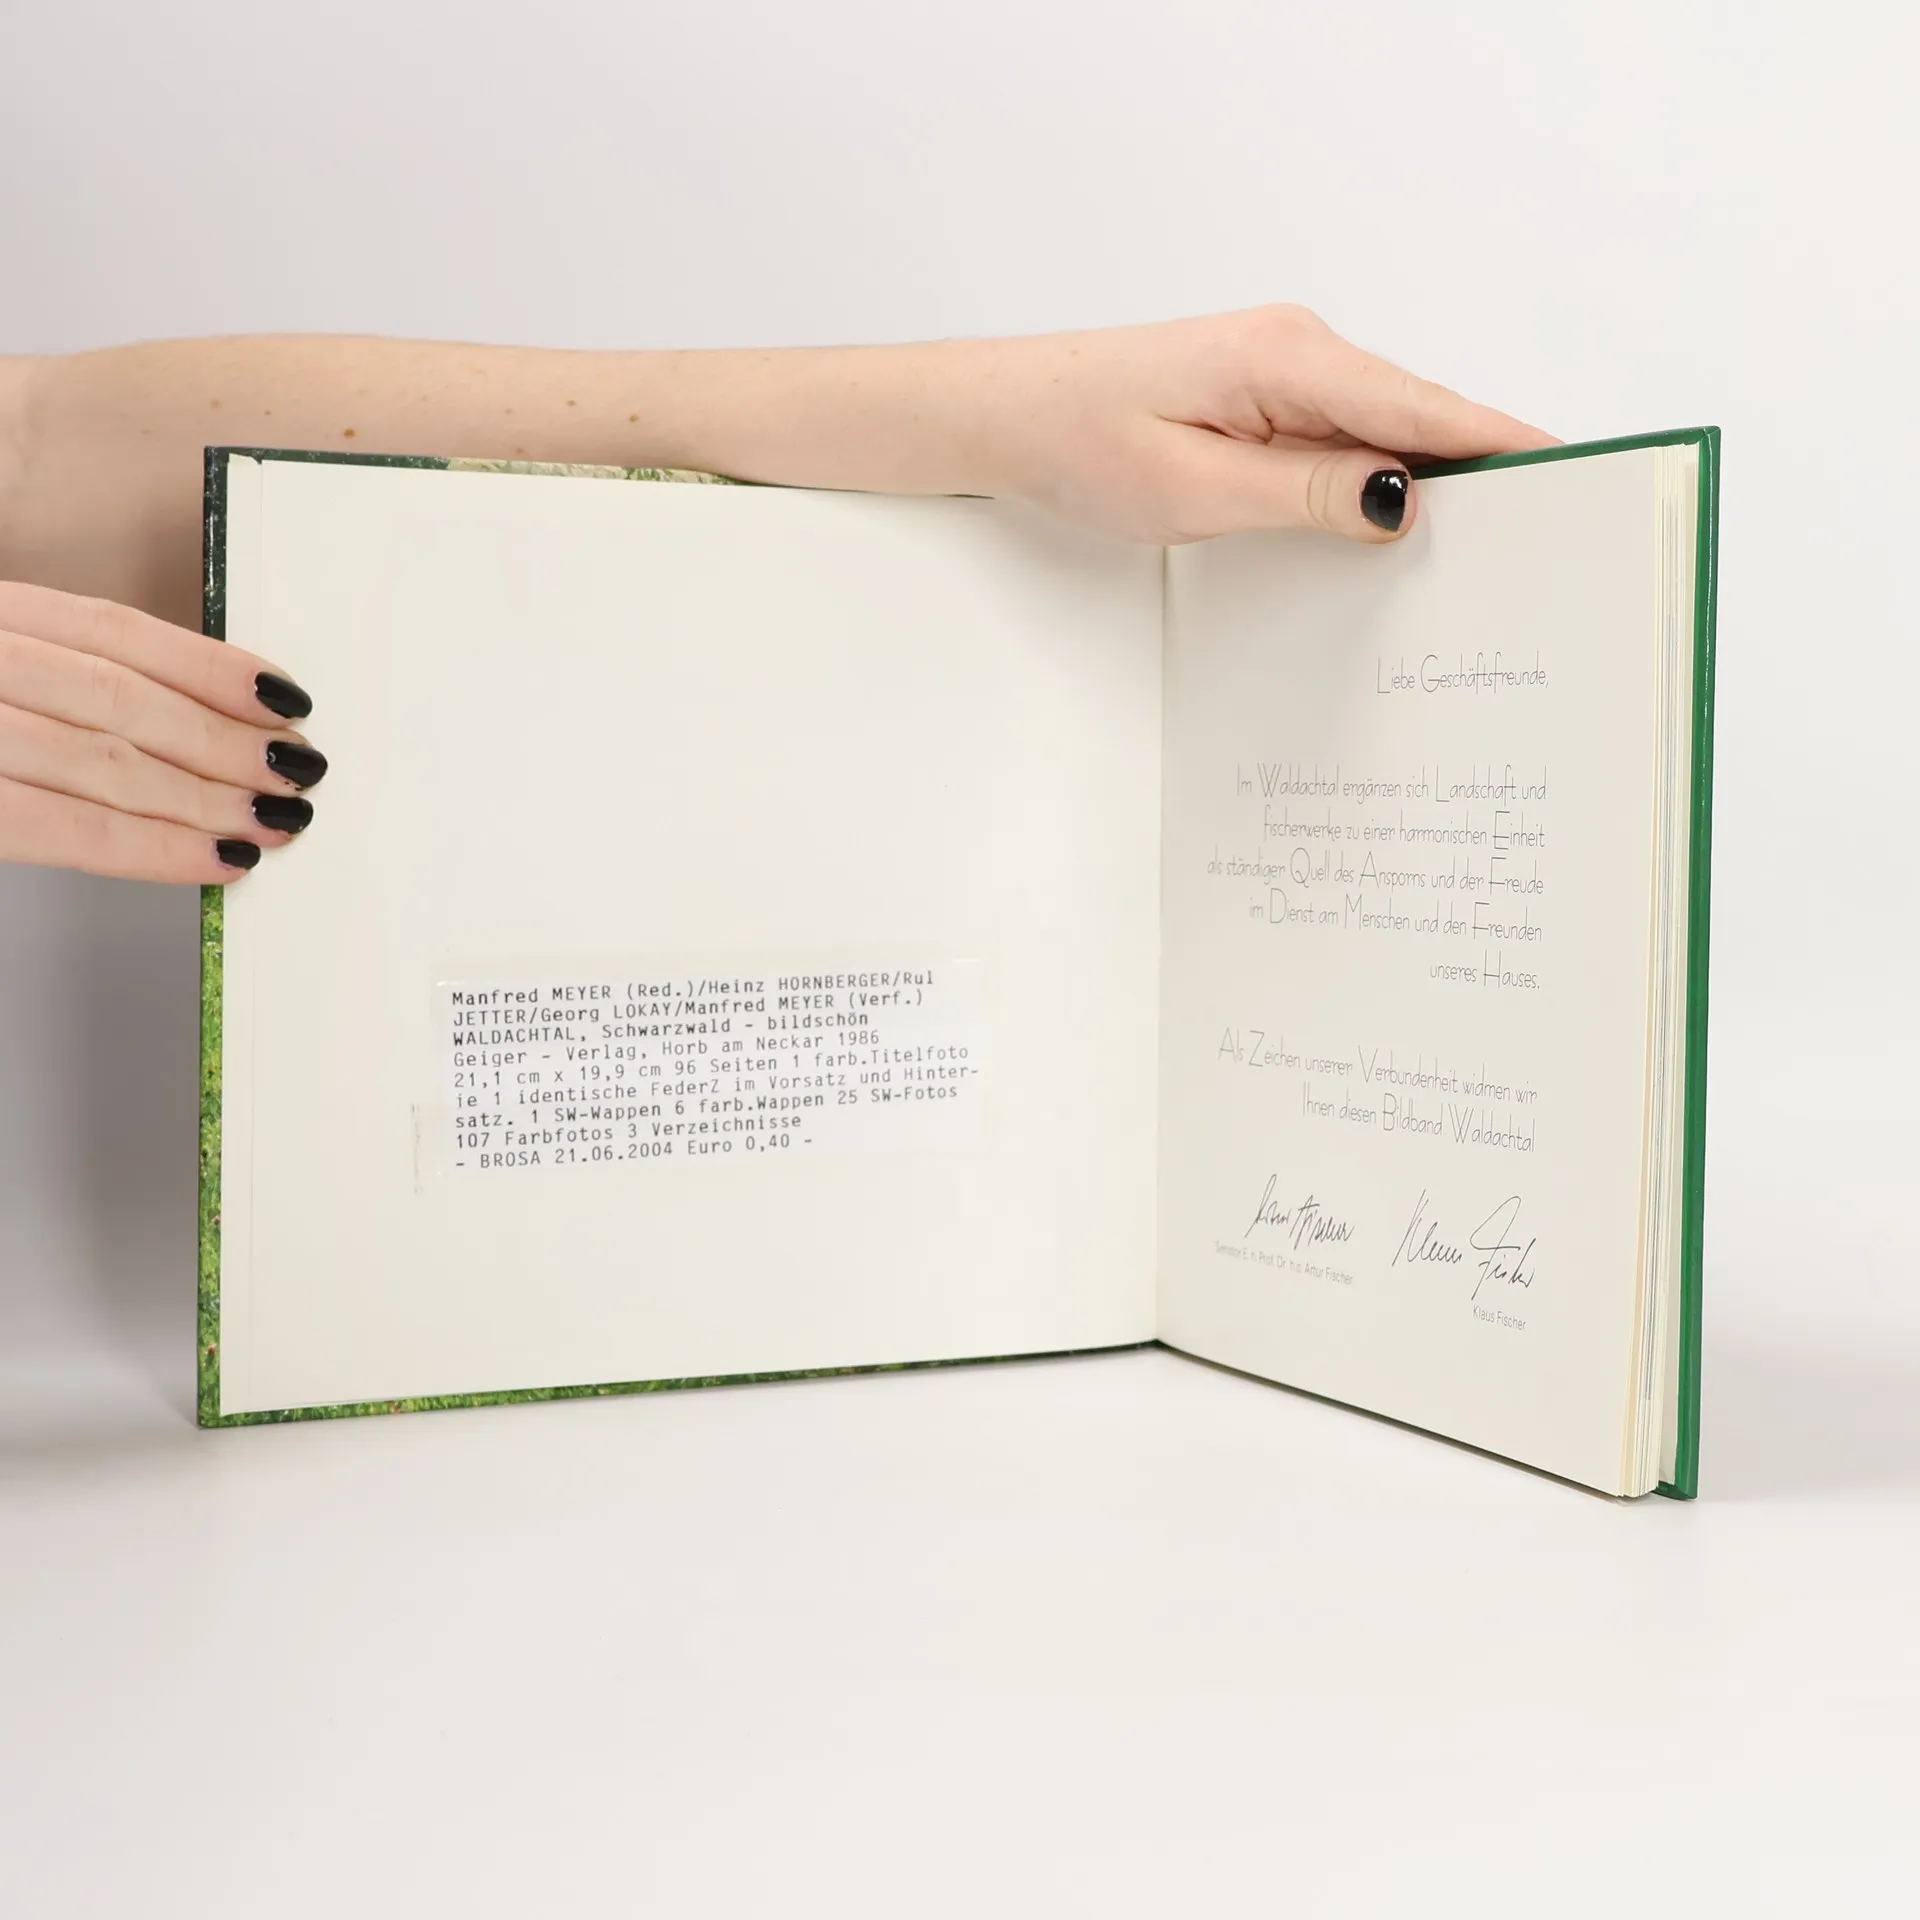 Manfred MEYER (Red.)/Heinz HORNBERGER/Rul
JETTER/Georg LOKAY/Manfred MEYER (Verf.)
WALDACHTAL, Schwarzwald - bildschön
Geiger - Verlag, Horb am Neckar 1986
21,1 cm x 19,9 cm 96 Seiten 1 farb.Titelfoto
je 1 identische FederZ im Vorsatz und Hinter-
satz. 1 SW-Wappen 6 farb.Wappen 25 SW-Fotos
107 Farbfotos 3 Verzeichnisse
- BROSA 21.06.2004 Euro 0,40 -
Liebe Geschäftsfreunde,
Im Waldachtal ergänzen sich Landschaft und
fischerwerke zu einer harmonischen Einheit
als ständiger Quell des Ansporns und der Freude
im Dienst am Menschen und den Freunden
unseres Hauses.
Als Zeichen unserer Verbundenheit widmen wir
Ihnen diesen Bildband Waldachtal
Klaus Fischer
Senator E. h. Prof. Dr. h.c. Artur Fischer
Klaus Fischer